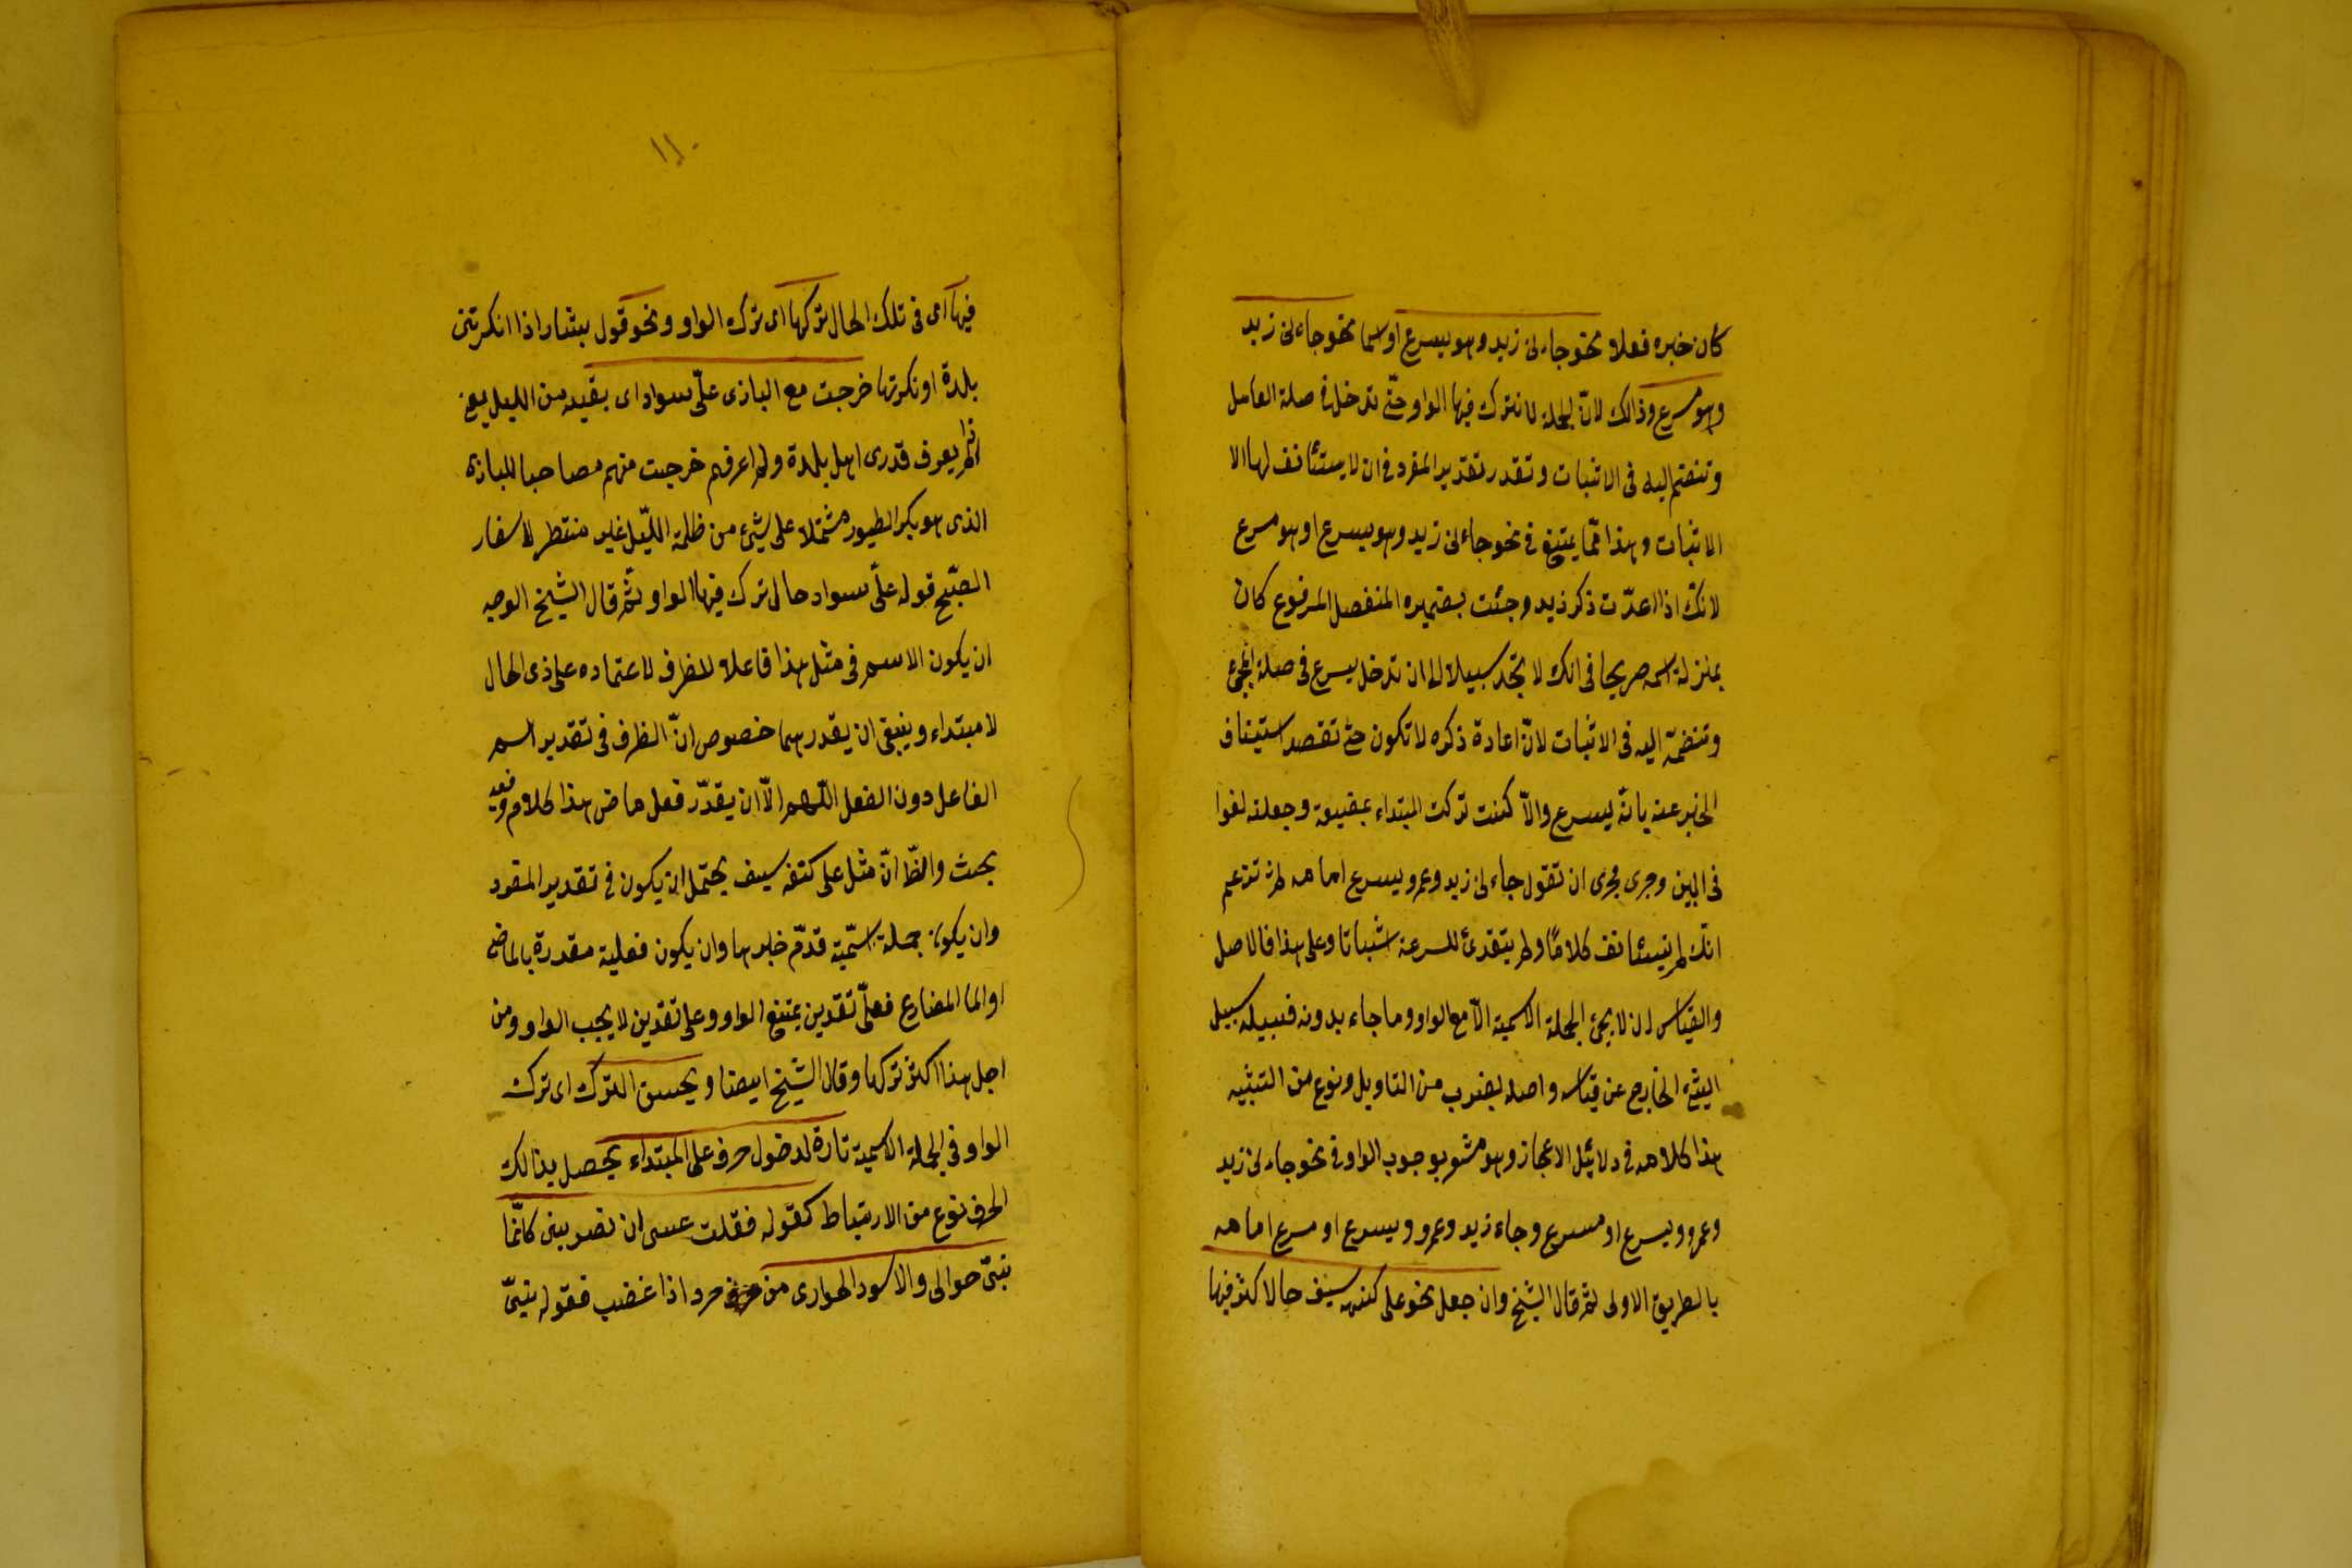 كان خبره فعلا نحو جاءنى زيد وهو يسرع او اسما نحو جاءنى زيد
وهو مسرع وذالك لانّ الجملة لا تترك فيها الواو حتّى تدخل فى صلة العامل
وتنضم اليه فى الاثبات وتقدر تقدير المفرد فى ان لا يستئانف لها الا
الاثبات وهذا ممّا يمتنع فى نحو جاءنى زيد وهو يسرع او هو مسرع
لانّك اذا اعدّت ذكر زيد وجئت بضميره المنفصل المرفوع كان
بمنزلة اسمه صريحا فى انك لا تجد سبيلا الى ان تدخل يسرع فى صلة المجئ
وتنضمّه اليه فى الاثبات لانّ اعادة ذكره لا تكون حتى تقصد استيناف
الخبر عنه بانّه يسرع والّا كنت تركت المبتداء بمضيعة وجعلته لغوا
فى البين وجرى مجرى ان تقول جاءنى زيد وعمرو يسرع امامه ثم تزعم
انّك لم تستئانف كلامًا ولم تبتدئ للسرعة اثباتا وعلى هذا فالاصل
والقياس ان لا يجئ الجملة الاسمية الّا مع الواو وما جاء بدونه فسبيله سبيل
الشئ الخارج عن قياسه واصله بضرب من التاويل ونوع من التشبيه
هذا كلامه فى دلائل الاعجاز وهو مشعر بوجوب الواو فى نحو جاءنى زيد
وعمرو ويسرع او مسرع وجاء زيد وعمرو ويسرع او مسرع امامه
بالطريق الاولى ثم قال الشيخ وان جعل نحو على كتفه سيف حالا كثر فيها
١١٠
فيها اى فى تلك الحال تركها اى ترك الواو ونحو قول بشار اذا انكرتنى
بلدة او نكرتها خرجت مع البازى علىّ سواد اى بقيه من الليل يعنى
اذا لم يعرف قدرى اهل بلدة ولم اعرفهم خرجت منهم مصاحبا للبازى
الذى هو بكر الطيور مشتملا على شئ من ظلمة اللّيل غير منتظر لاسفار
الصّبح قوله علىّ سواد حال ترك فيها الواو ثمّ قال الشيخ الوجه
ان يكون الاسم فى مثل هذا فاعلا للظرف لاعتماده على ذى الحال
لا مبتداء وينبغى ان يقدر هها خصوص انّ الظرف فى تقدير اسم
الفاعل دون الفعل اللّهم الّا ان يقدّر فعل ماض هذا كلامه وفيه
بحث والظّ انّ مثل على كتفه سيف يحتمل ان يكون فى تقدير المفرد
وان يكون جملة اسمّية قدّم خبرها وان يكون فعلية مقدرة بالماضى
او المضارع فعلى تقديرين يمتنع الواو وعلى تقديرين لا يجب الواو ومن
اجل هذا اكثر تركها وقال الشيخ ايضا ويحسن الترك اى ترك
الواو فى الجملة الاسمية تارة لدخول حرف على المبتداء يحصل بذالك
الحرف نوع من الارتباط كقوله فقلت عسى ان تصريبنى كانّما
بنىّ حوالى والاسود الحوارى من حرد اذا غضب فقوله بنىّ